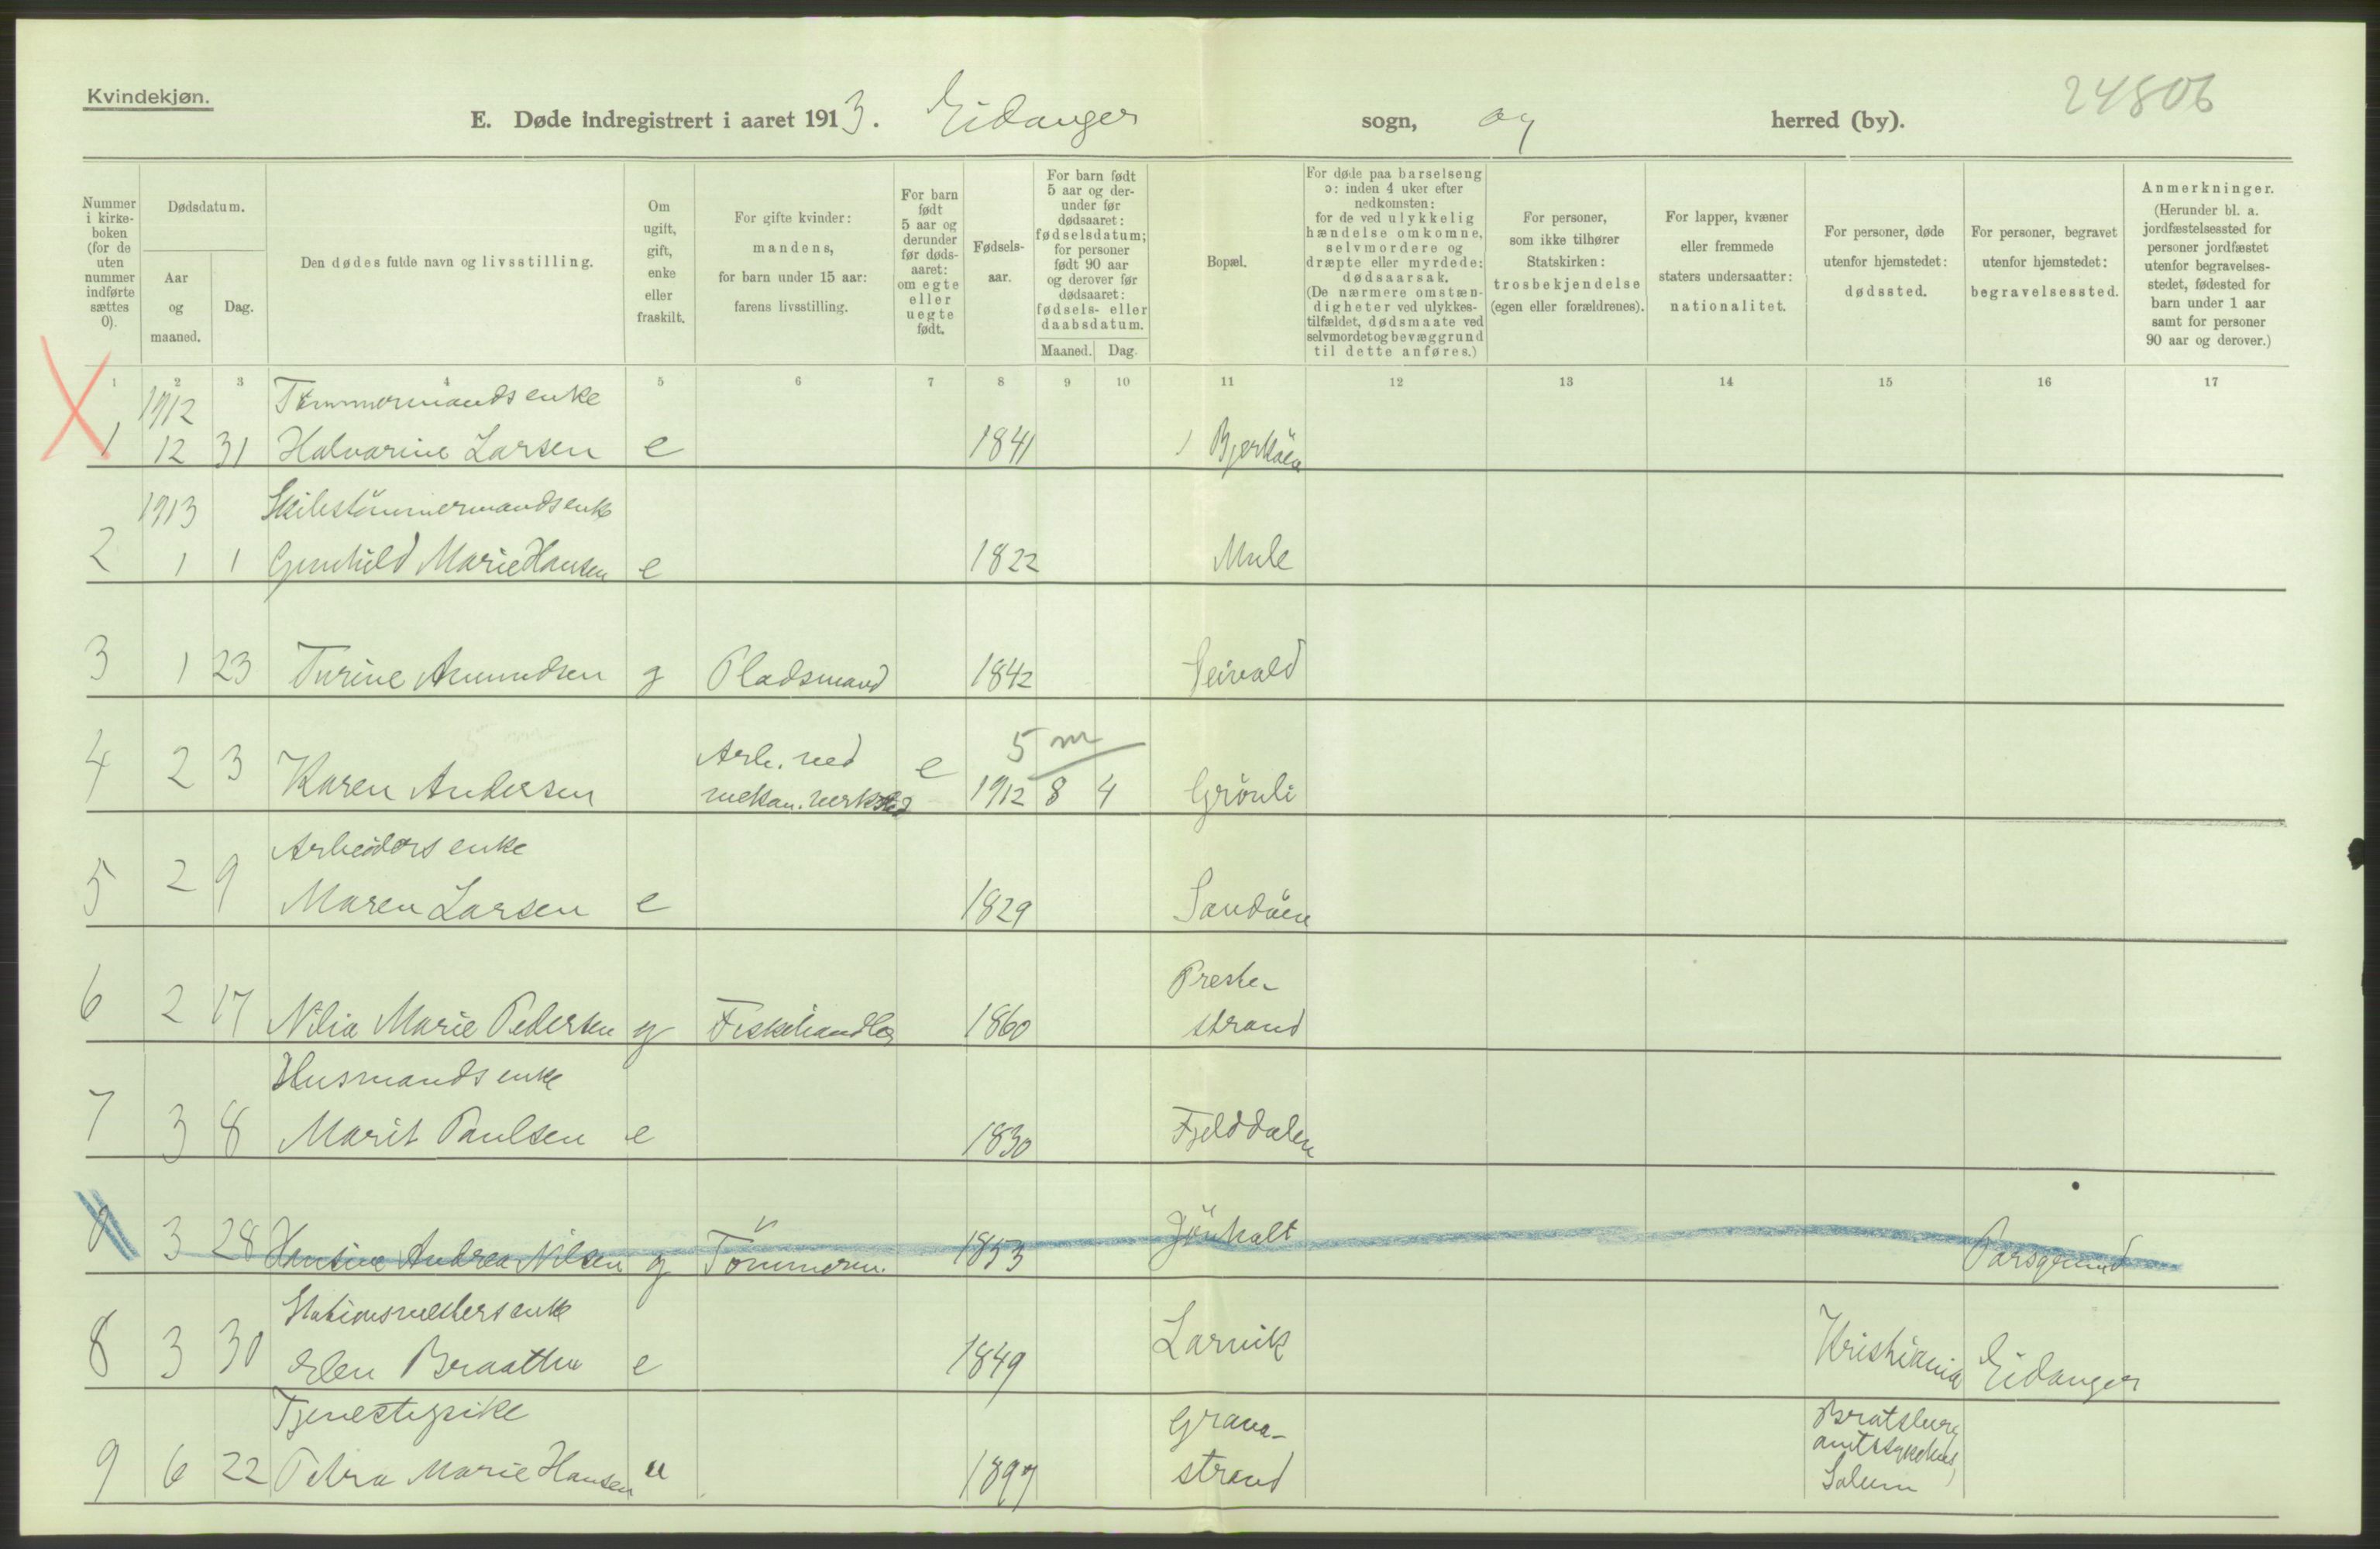 Kvindekjøn.
24806
E. Døde indregistrert i aaret 1913. Eidanger sogn, og herred (by).
Nummer i kirke- boken (for de uten nummer indførte sættes 0).
Dødsdatum.
Aar og maaned.
Dag.
Den dødes fulde navn og livsstilling.
Om ugift, gift, enke eller fraskilt.
For gifte kvinder: mandens, for barn under 15 aar: farens livsstilling.
For barn født 5 aar og derunder før døds- aaret: om egte eller uegte født.
Fødsels- aar.
For barn født 5 aar og der- under før dødsaaret: fødselsdatum; for personer født 90 aar og derover før dødsaaret: fødsels- eller daabsdatum.
Maaned. Dag.
Bopæl.
For døde paa barselseng ɔ: inden 4 uker efter nedkomsten: for de ved ulykkelig hændelse omkomne, selvmordere og dræpte eller myrdede: dødsaarsak. (De nærmere omstæn- digheter ved ulykkes- tilfældet, dødsmaate ved selvmordet og bevæggrund til dette anføres.)
For personer, som ikke tilhører Statskirken: trosbekjendelse (egen eller forældrenes).
For lapper, kvæner eller fremmede staters undersaatter: nationalitet.
For personer, døde utenfor hjemstedet: dødssted.
For personer, begravet utenfor hjemstedet: begravelsessted.
Anmerkninger. (Herunder bl. a. jordfæstelsessted for personer jordfæstet utenfor begravelses- stedet, fødested for barn under 1 aar samt for personer 90 aar og derover.)
1 2 3 4 5 6 7 8 9 10 11 12 13 14 15 16 17
1912 Tømmermands enke
1 12 31 Halvarine Larsen e 1841 Bjerköen
1913 Skibstömmermands enke
2 1 1 Gunhild Marie Hansen e 1822 Mule
3 1 23 Turine Amundsen g Pladsmand 1842
Arb. ved 5 m
4 2 3 Karen Andersen mekan. verksted e 1912 8 4 Grönli
Arbeiders enke
5 2 9 Maren Larsen e 1829 Sandöen
Preste-
6 2 17 Nilia Marie Pedersen g Fiskehandler 1860 strand
Husmands enke
7 3 8 Marit Paulsen e 1830 Fjelddalen
0 3 28 Hansine Andrea Nilsen g Tömmerm. 1853 Jönholt Porsgrund
Stationsmesters enke
8 3 30 Elen Braathen e 1849 Larvik Kristiania Eidanger
Tjenestepike Grava- Bratsberg
amtssykehus,
9 6 22 Petra Marie Hansen u 1897 strand Solum